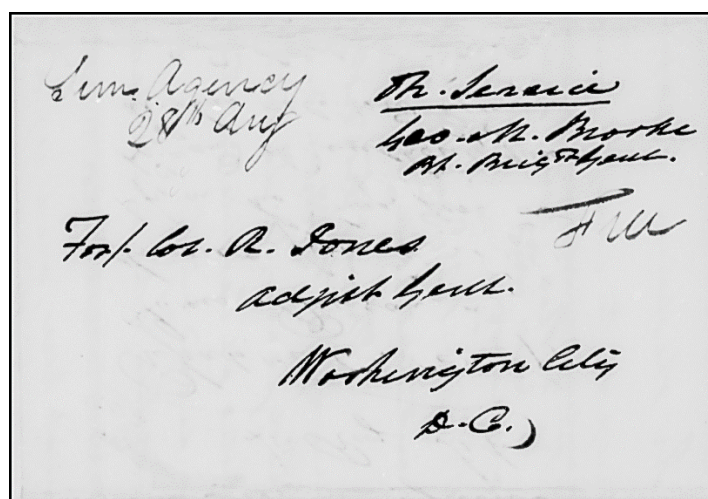 Sem. Agency
28th Aug
On. Service
Geo. M. Brooke
Bt. Brigr Genl.
Free
For/. Col. R. Jones
Adjut Genl.
Washington City
D.C.)